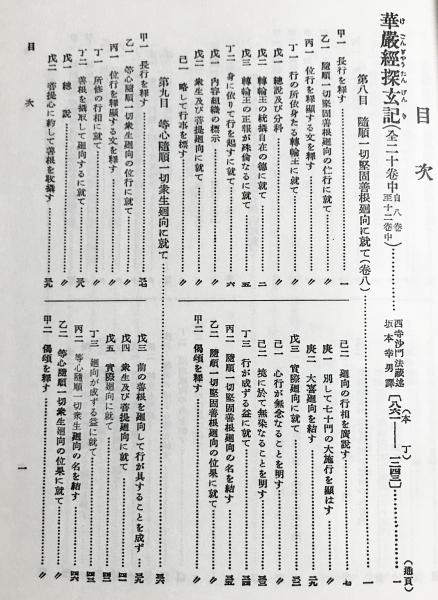 目次
華嚴經探玄記(全二十卷中自八卷至十二卷中)……西寺沙門法藏述 坂本幸男譯[八六一——一二四三]……一
けごんぎやうたんげんき
(本丁)
(通頁)
第八目 隨順一切堅固善根廻向に就て(卷八)……一
甲一 長行を釋す……一
乙一 隨順一切堅固善根廻向の仁行に就て……〃
丙一 位行を釋顯する文を釋す……〃
丁一 行の所依身たる轉輪王に就て……〃
戊一 總說及び分科……〃
戊二 轉輪王の統攝自在の德に就て……二
戊三 轉輪王の正報が殊倫なるに就て……五
丁二 身に依りて行を起すに就て……六
戊一 內容組織の標示……〃
戊二 衆生及び菩提廻向に就て……〃
己一 略して行事を標す……〃
己二 廻向の行相を廣說す……七
庚一 別して七十門の大施行を顯はす……〃
庚二 大喜廻向を結す……元
戊三 實際廻向に就て……〃
己一 心行が無念なることを明す……〃
己二 境に於て無染なることを明す……〃
丁三 行が成ずる益に就て……
丙二 隨順一切堅固善根廻向の名を結す……
乙二 隨順一切堅固善根廻向の位果に就て……〃
甲二 偈頌を釋す……〃
第九目 等心隨順一切衆生廻向に就て……
甲一 長行を釋す……
乙一 等心隨順一切衆生廻向の位行に就て……〃
丙一 位行を釋顯する文を釋す……〃
丁一 所修の行相に就て……〃
丁二 善根を攝取して廻向するに就て……
戊一 總說……〃
戊二 菩提心に約して善根を收攝す……
戊三 前の善根を廻向して行が具することを成ず……
戊四 衆生及び菩提廻向に就て……
戊五 實際廻向に就て……
丁三 廻向が成ずる益に就て……
丙二 等心隨順一切衆生廻向の名を結す……
乙二 等心隨順一切衆生廻向の位果に就て……〃
甲二 偈頌を釋す……〃
目次
一